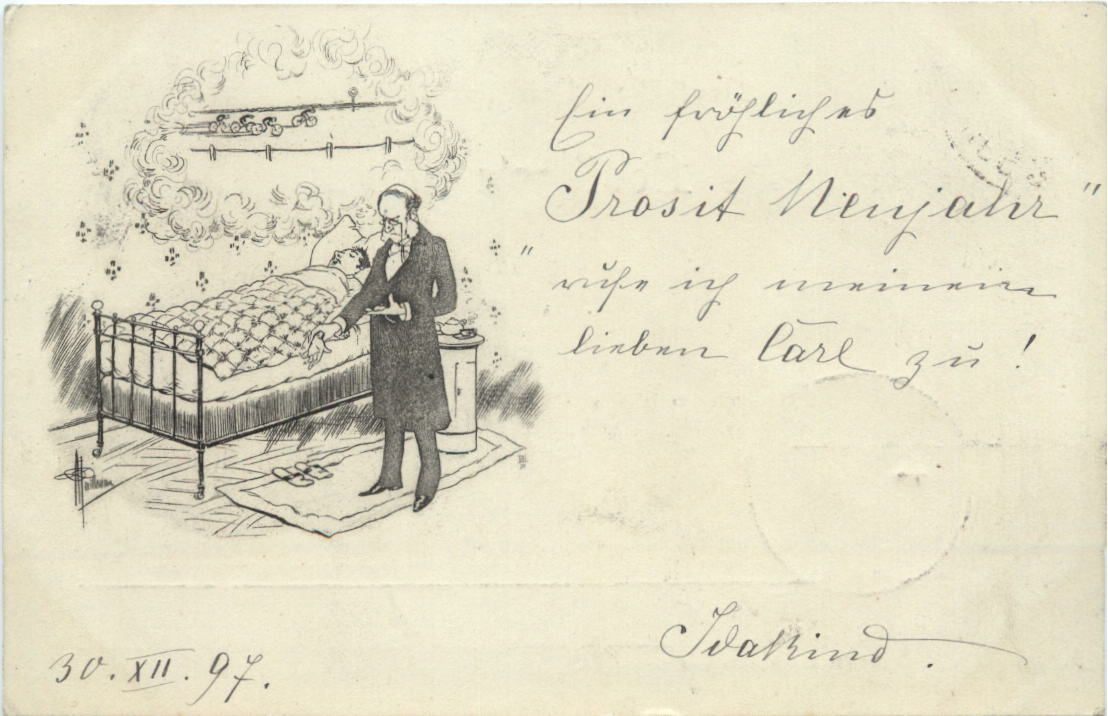 Ein fröhliches
Prosit Neujahr"
"rufe ich meinem
lieben Carl zu!
Idakind.
30. XII. 97.